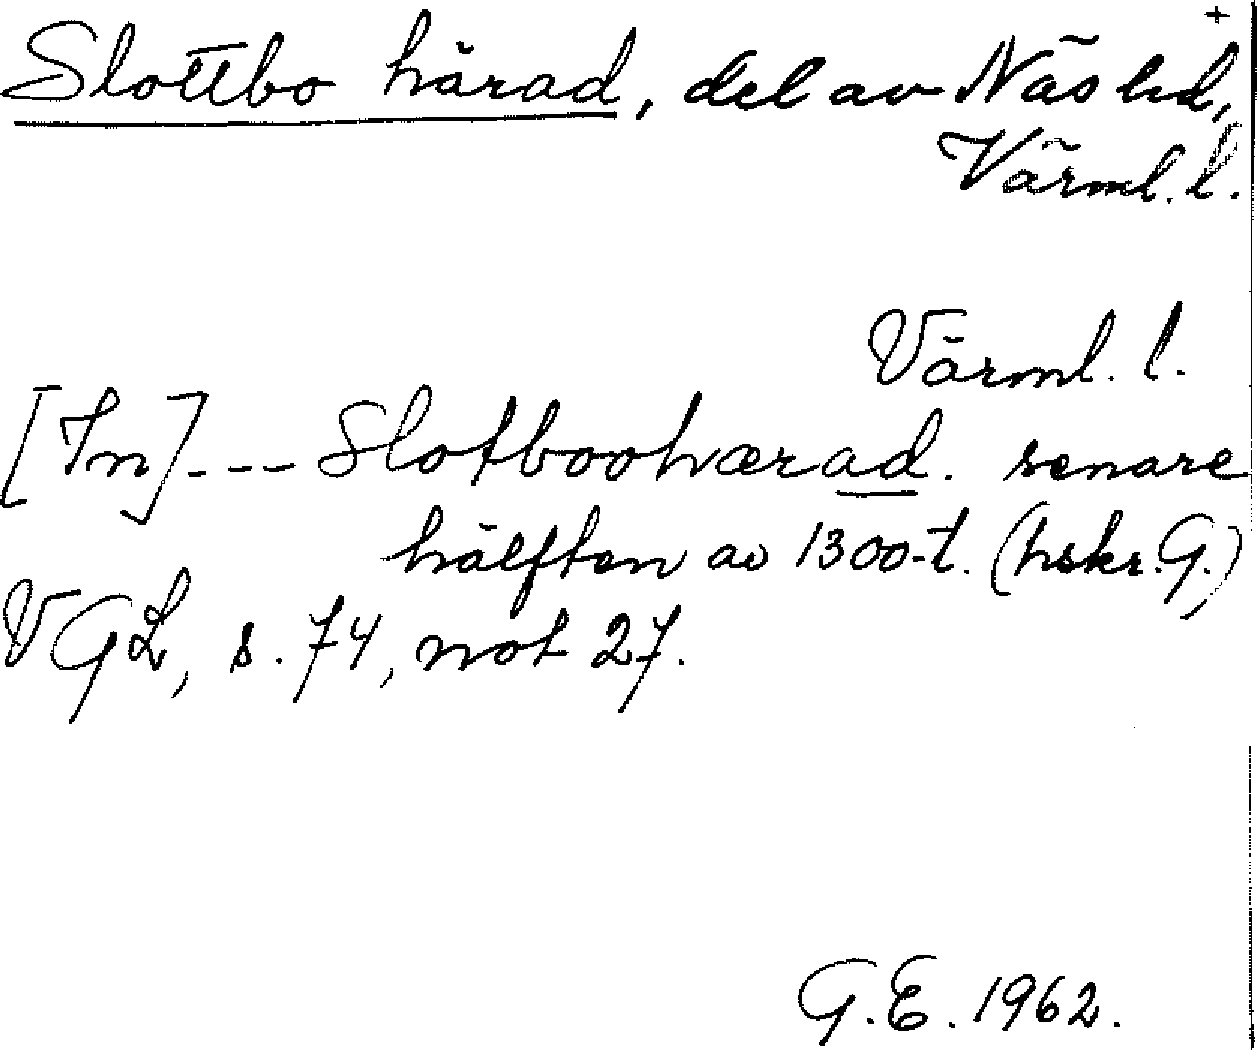 +
Slottbo härad, del av Näs hd,
Värml. l.
Värml. l.
[In] --- Slotboohærad. senare
hälften av 1300-t. (hskr. G.)
VGL, s. 74, not 27.
G.E. 1962.